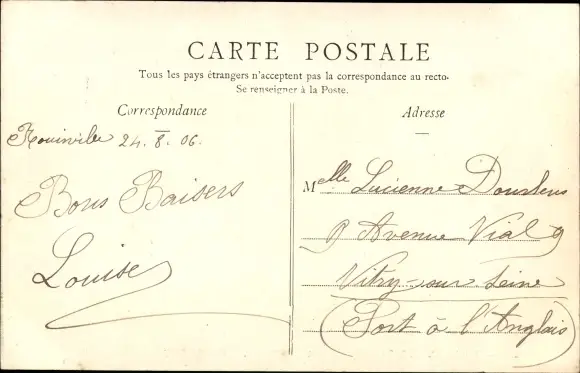 CARTE POSTALE
Tous les pays étrangers n'acceptent pas la correspondance au recto.
Se renseigner à la Poste.
Correspondance
24. 8. 06.
Bons Baisers
Louise
Adresse
Melle Lucienne
9 Avenue Vial 9
Vitry-sur Seine
(Port à l'Anglais)